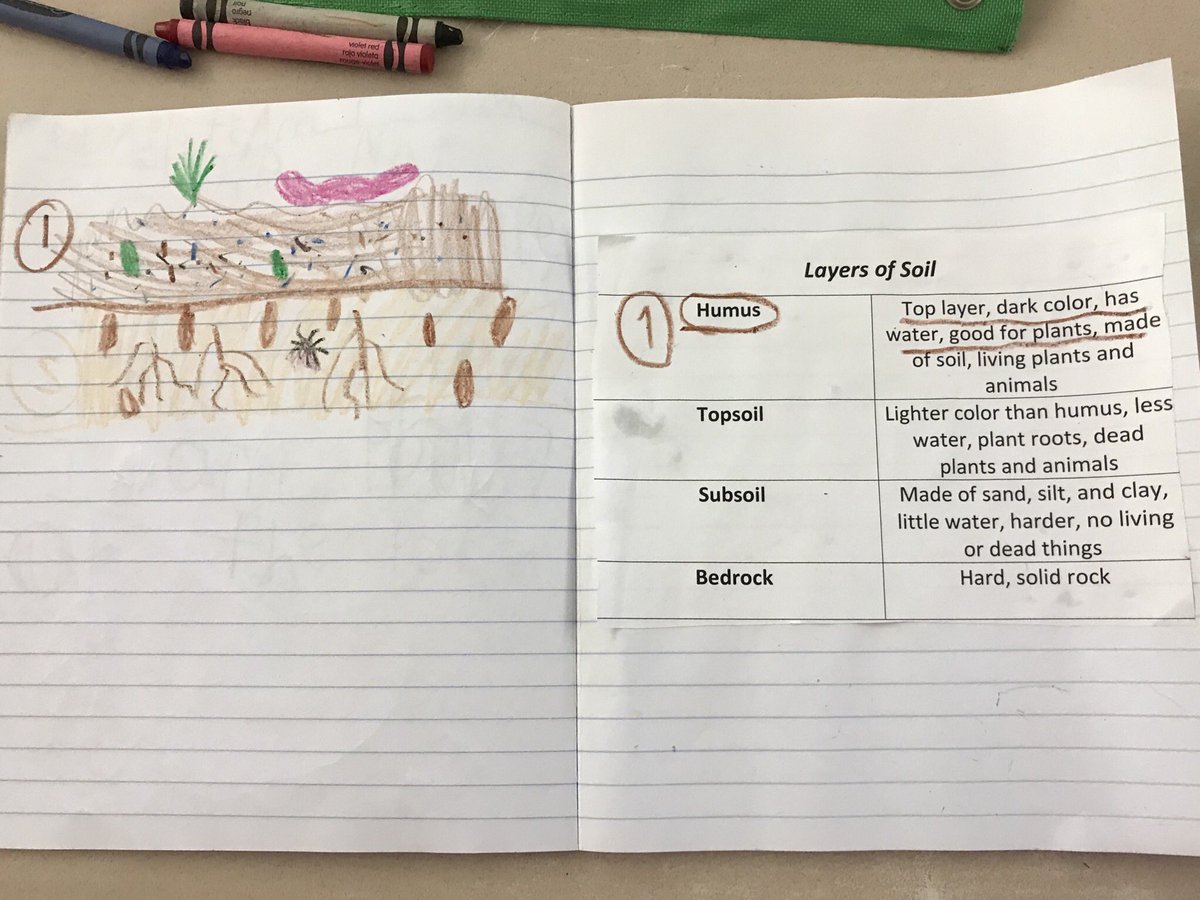 noir
negro
black
violet red
rojo violeta
rouge-violet
1
2
Layers of Soil
1
Humus
Top layer, dark color, has
water, good for plants, made
of soil, living plants and
animals
Topsoil
Lighter color than humus, less
water, plant roots, dead
plants and animals
Subsoil
Made of sand, silt, and clay,
little water, harder, no living
or dead things
Bedrock
Hard, solid rock